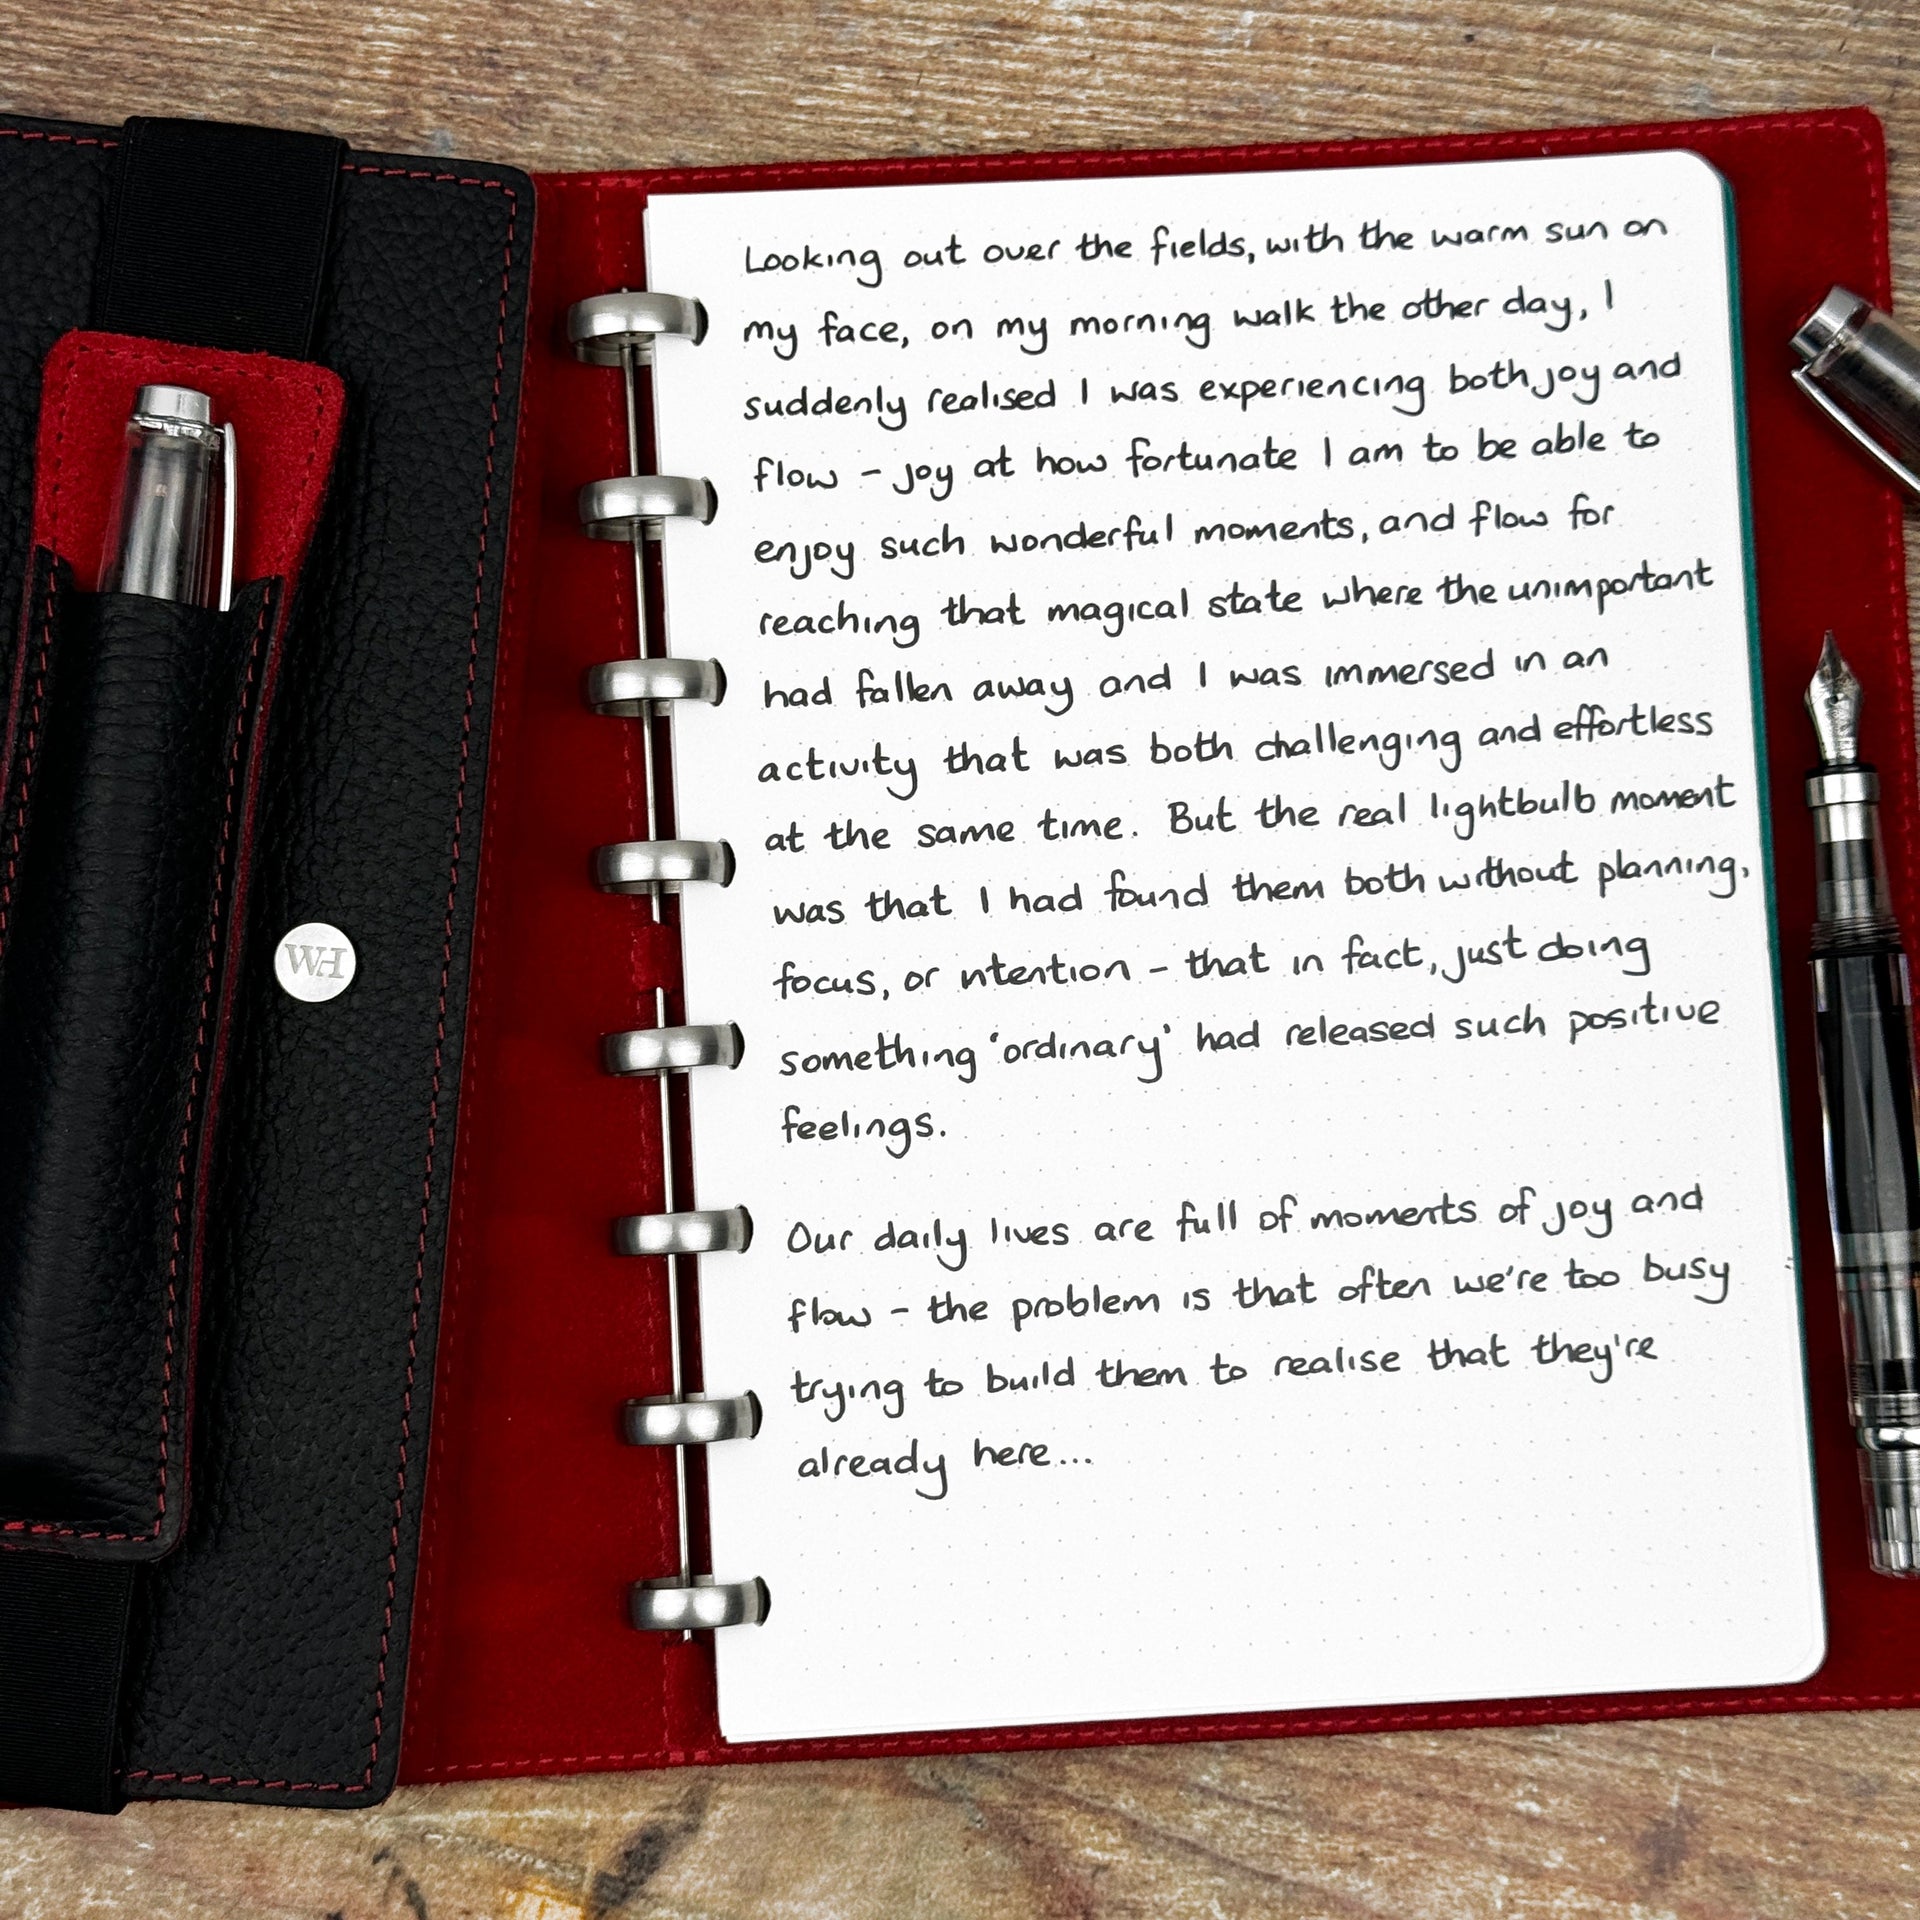 WH
Looking out over the fields, with the warm sun on
my face, on my morning walk the other day, I
suddenly realised I was experiencing both joy and
flow - joy at how fortunate I am to be able to
enjoy such wonderful moments, and flow for
reaching that magical state where the unimportant
had fallen away and I was immersed in an
activity that was both challenging and effortless
at the same time. But the real lightbulb moment
was that I had found them both without planning,
focus, or intention - that in fact, just doing
something 'ordinary' had released such positive
feelings.
Our daily lives are full of moments of joy and
flow - the problem is that often we're too busy
trying to build them to realise that they're
already here...